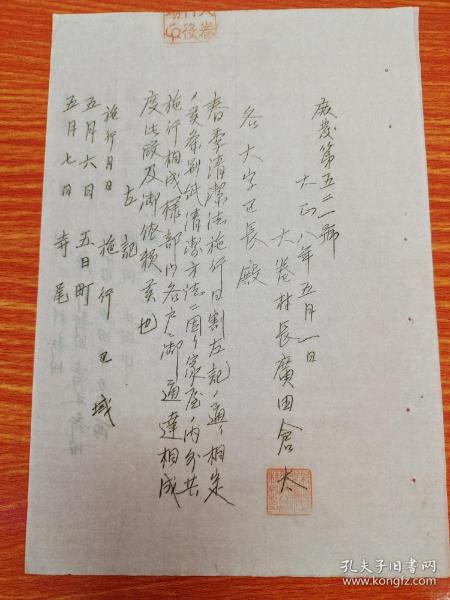 庶發第五二一號
大正八年五月一日
大巻村長廣田倉太
各大字区長殿
春季清潔法施行日割左記ノ通リ相定
候条別紙清潔方法ニ因リ家屋ノ内外共
施行相成様部内各戸ニ御通達相成
度此段及御依頼候也
左記
施行月日 施行区域
五月六日 五日町
五月七日 寺尾
大巻
村役
場印
孔夫子旧书网
www.kongfz.com